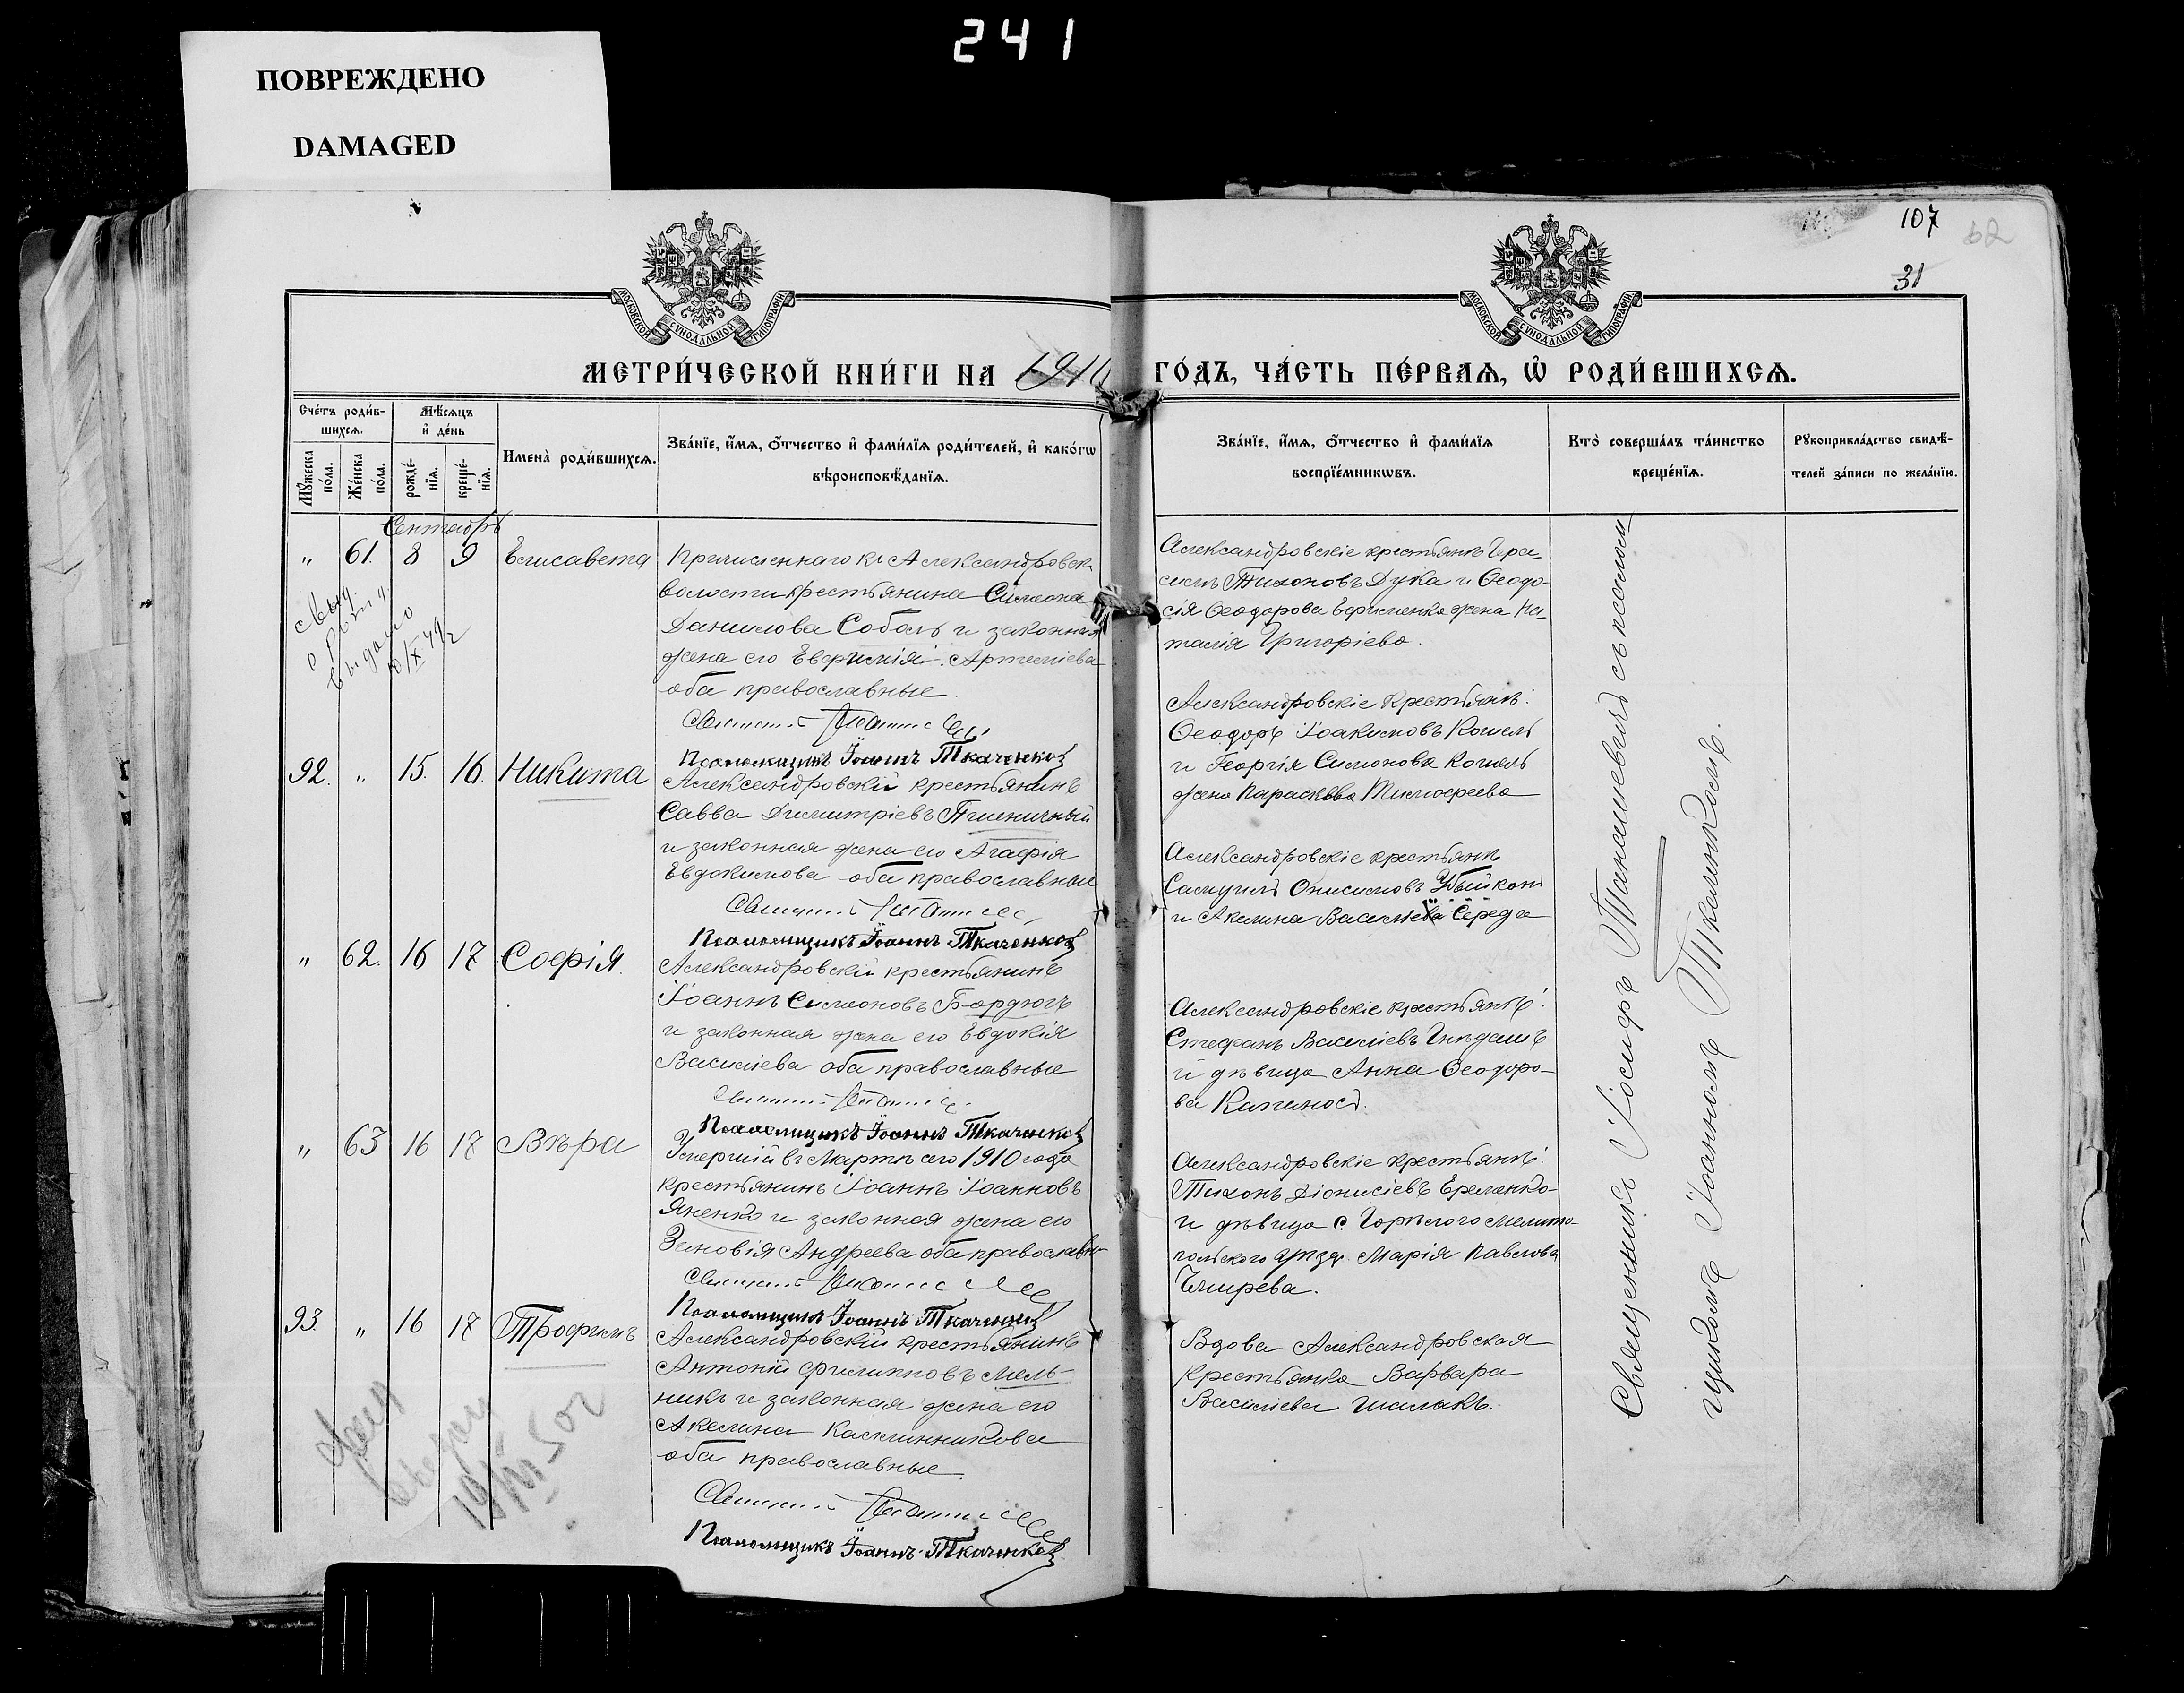 241
ПОВРЕЖДЕНО
DAMAGED
107
62
31
МОСКОВСКОЙ СѴНОДАЛЬНОЙ ТИПОГРАФІИ
МОСКОВСКОЙ СѴНОДАЛЬНОЙ ТИПОГРАФІИ
МЕТРИ́ЧЕСКОЙ КНИ́ГИ НА 1910 ГО́ДЪ, ЧА́СТЬ ПЕ́РВАѦ, Ѡ҆ РОДИ́ВШИХСѦ.
Сче́тъ роди́в-
шихсѧ.
Мꙋ́жеска
по́ла.
Же́нска
по́ла.
Мѣ́сѧцъ
и҆ де́нь
рожде́-
нїѧ.
креще́-
нїѧ.
Имена̀ роди́вшихсѧ.
Зва́нїе, и҆́мѧ, ѻ҆́тчество и҆ фами́лїѧ роди́телей, и҆ како́гѡ
вѣроисповѣ́данїѧ.
Зва́нїе, и҆́мѧ, ѻ҆́тчество и҆ фами́лїѧ
воспрїе́мникѡвъ.
Кто̀ соверша́лъ та́инство
креще́нїѧ.
Рꙋкоприкла́дство свидѣ́-
телей за́писи по жела́нїю.
Сентябрь
" 61. 8 9 Елисавета
Причисленнаго къ Александровск.
волости крестьянина Симеона
Данилова Соболь и законная
жена его Евфимія Артеміева
оба православные.
Псаломщикъ Іоаннъ Ткаченко
Александровскіе крестьяне Гера-
симъ Тихоновъ Дука и Ѳеодо-
сія Ѳеодорова Ефименко жена На-
талія Григоріева.
выдано
92. " 15. 16. Никита
Александровскій крестьянинъ
Савва Димитріевъ Пшеничный
и законная жена его Агафія
Евдокимова оба православные
Псаломщикъ Іоаннъ Ткаченко
Александровскіе крестьяне:
Ѳеодоръ Іоакимовъ Кошель
и Георгія Симонова Кошель
жена Параскева Тимофеева
" 62. 16 17 Софія.
Александровскій крестьянинъ
Іоаннъ Симеоновъ Бордюгъ
и законная жена его Евдокія
Василіева оба православные
Псаломщикъ Іоаннъ Ткаченко
Александровскіе крестьяне
Самуилъ Онисимовъ
и Акилина Василіева Середа
" 63 16 17 Вѣра
Умершій въ Мартѣ сего 1910 года
крестьянинъ Іоаннъ Іоанновъ
Яненко и законная жена его
Зиновія Андреева оба православн-
Псаломщикъ Іоаннъ Ткаченко
Александровскіе крестьяне:
Стефанъ Василіевъ
и дѣвица Анна Ѳеодоро-
ва Капинос.
93. " 16 17 Трофимъ
Александровскій крестьянинъ
Антоній Филипповъ Мель-
никъ и законная жена его
Акилина Каллинникова
оба православные.
Псаломщикъ Іоаннъ Ткаченко
Александровскіе крестьяне:
Тихонъ Діонисіевъ Еременко-
и дѣвица с. Горѣлого Мелито-
польского уѣзд. Марія Павлова
Вдова Александровская
крестьянка Варвара
Василіева Шамакъ.
Священникъ Іосифъ съ псалом-
щикомъ Іоанномъ Ткаченкомъ.